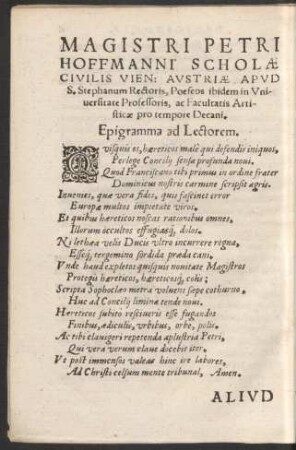 MAGISTRI PETRI
HOFFMANNI SCHOLÆ
CIVILIS VIEN: AVSTRIÆ APVD
S. Stephanum Rectoris, Poeseos ibidem in Vni-
uersitate Professoris, ac Facultatis Arti-
sticæ pro tempore Decani,
Epigramma ad Lectorem.
QVisquis es, hæreticos malè qui defendis iniquos,
Perlege Concilij sensa profunda noui.
Quod Franciscano tibi primus in ordine frater
Dominicus nostris carmine scripsit agris.
Inuenies, quæ vera fides, quis fascinet error
Europæ multos impietate viros.
Et quibus hæreticos noscas rationibus omnes,
Illorum occultos effugiasq́, dolos.
Ni lethæa velis Ducis vltro incurrere regna,
Essèq, tergemino sordida præda cani.
Vnde haud expletos quisquis nouitate Magistros
Protegis hæreticos, hæreticosq́, colis;
Scripta Sophoclæo metra voluens sæpe cothurno,
Huc ad Concilij limina tende noui.
Hæreticos subitò restiueris esse fugandos
Finibus, ædiculis, vrbibus, orbe, polis.
Ac tibi clauigeri repetenda aplustria Petri,
Qui vera verum claue docebit iter.
Vt post immensos valeas hinc ire labores,
Ad Christi celsum mente tribunal, Amen.
ALIVD